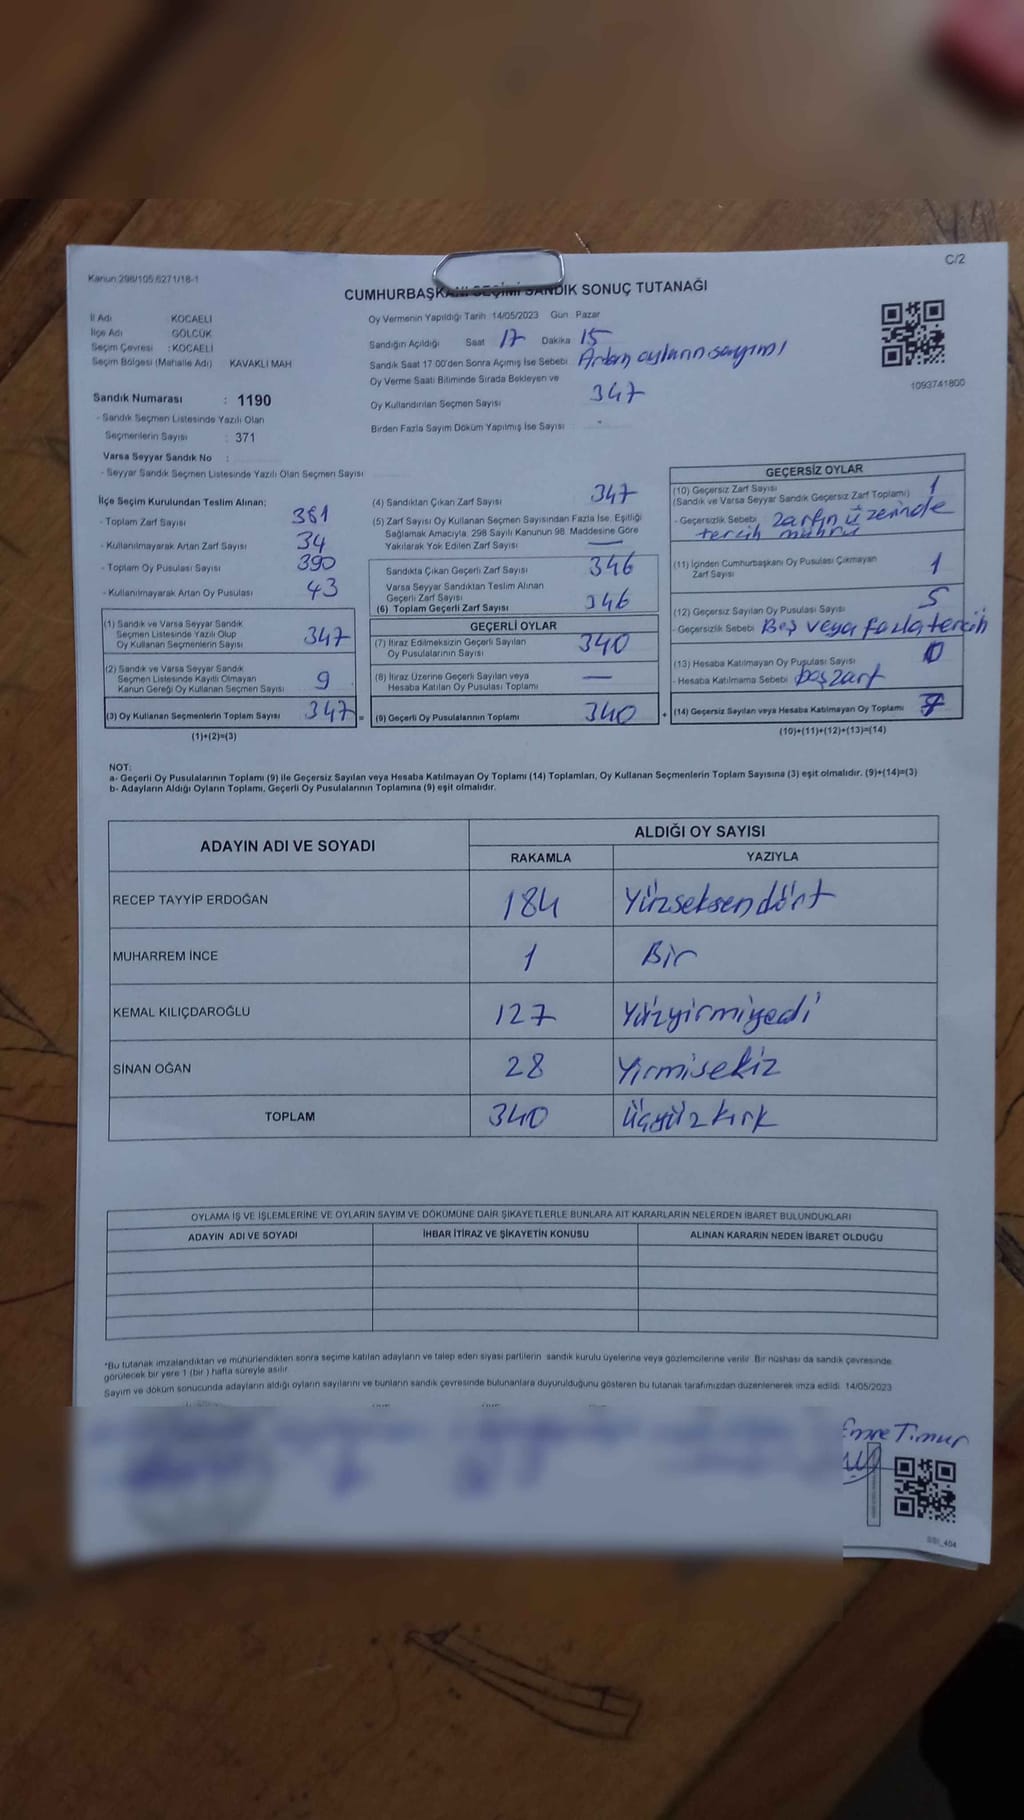 Kanun 298/105 6271/18-1
C/2
CUMHURBAŞKANI SEÇİMİ SANDIK SONUÇ TUTANAĞI
İl Adı KOCAELİ
İlçe Adı GÖLCÜK
Seçim Çevresi : KOCAELİ
Seçim Bölgesi (Mahalle Adı) KAVAKLI MAH
Sandık Numarası : 1190
- Sandık Seçmen Listesinde Yazılı Olan
Seçmenlerin Sayısı : 371
Varsa Seyyar Sandık No :
- Seyyar Sandık Seçmen Listesinde Yazılı Olan Seçmen Sayısı
Oy Vermenin Yapıldığı Tarih 14/05/2023 Gün Pazar
Sandığın Açıldığı Saat 17 Dakika 15
Sandık Saat 17.00'den Sonra Açımış İse Sebebi Artan oyların sayımı
Oy Verme Saati Bitiminde Sırada Bekleyen ve
Oy Kullandırılan Seçmen Sayısı 347
Birden Fazla Sayım Döküm Yapılmış İse Sayısı : -
1093741800
İlçe Seçim Kurulundan Teslim Alınan;
- Toplam Zarf Sayısı 381
- Kullanılmayarak Artan Zarf Sayısı 34
- Toplam Oy Pusulası Sayısı 390
- Kullanılmayarak Artan Oy Pusulası 43
(1) Sandık ve Varsa Seyyar Sandık
Seçmen Listesinde Yazılı Olup
Oy Kullanan Seçmenlerin Sayısı 347
(2) Sandık ve Varsa Seyyar Sandık
Seçmen Listesinde Kayıtlı Olmayan
Kanun Gereği Oy Kullanan Seçmen Sayısı 9
(3) Oy Kullanan Seçmenlerin Toplam Sayısı 347 =
(1)+(2)=(3)
(4) Sandıktan Çıkan Zarf Sayısı 347
(5) Zarf Sayısı Oy Kullanan Seçmen Sayısından Fazla İse, Eşitliği
Sağlamak Amacıyla, 298 Sayılı Kanunun 98. Maddesine Göre
Yakılarak Yok Edilen Zarf Sayısı —
Sandıkta Çıkan Geçerli Zarf Sayısı 346
Varsa Seyyar Sandıktan Teslim Alınan
Geçerli Zarf Sayısı
(6) Toplam Geçerli Zarf Sayısı 346
GEÇERLİ OYLAR
(7) İtiraz Edilmeksizin Geçerli Sayılan
Oy Pusulalarının Sayısı 340
(8) İtiraz Üzerine Geçerli Sayılan veya
Hesaba Katılan Oy Pusulası Toplamı —
(9) Geçerli Oy Pusulalarının Toplamı 340 +
GEÇERSİZ OYLAR
(10) Geçersiz Zarf Sayısı
(Sandık ve Varsa Seyyar Sandık Geçersiz Zarf Toplamı) 1
- Geçersizlik Sebebi zarfın üzerinde
tercih mührü
(11) İçinden Cumhurbaşkanı Oy Pusulası Çıkmayan
Zarf Sayısı 1
(12) Geçersiz Sayılan Oy Pusulası Sayısı 5
- Geçersizlik Sebebi Beş veya fazla tercih
(13) Hesaba Katılmayan Oy Pusulası Sayısı 0
- Hesaba Katılmama Sebebi boş zarf
(14) Geçersiz Sayılan veya Hesaba Katılmayan Oy Toplamı 7
(10)+(11)+(12)+(13)=(14)
NOT:
a- Geçerli Oy Pusulalarının Toplamı (9) ile Geçersiz Sayılan veya Hesaba Katılmayan Oy Toplamı (14) Toplamları, Oy Kullanan Seçmenlerin Toplam Sayısına (3) eşit olmalıdır. (9)+(14)=(3)
b- Adayların Aldığı Oyların Toplamı, Geçerli Oy Pusulalarının Toplamına (9) eşit olmalıdır.
ADAYIN ADI VE SOYADI
ALDIĞI OY SAYISI
RAKAMLA YAZIYLA
RECEP TAYYİP ERDOĞAN 184 Yüzseksendört
MUHARREM İNCE 1 Bir
KEMAL KILIÇDAROĞLU 127 Yüzyirmiyedi
SİNAN OĞAN 28 Yirmisekiz
TOPLAM 340 Üçyüzkırk
OYLAMA İŞ VE İŞLEMLERİNE VE OYLARIN SAYIM VE DÖKÜMÜNE DAİR ŞİKAYETLERLE BUNLARA AİT KARARLARIN NELERDEN İBARET BULUNDUKLARI
ADAYIN ADI VE SOYADI İHBAR İTİRAZ VE ŞİKAYETİN KONUSU ALINAN KARARIN NEDEN İBARET OLDUĞU
*Bu tutanak imzalandıktan ve mühürlendikten sonra seçime katılan adayların ve talep eden siyasi partilerin sandık kurulu üyelerine veya gözlemcilerine verilir. Bir nüshası da sandık çevresinde
görülecek bir yere 1 (bir) hafta süreyle asılır.
Sayım ve döküm sonucunda adayların aldığı oyların sayılarını ve bunların sandık çevresinde bulunanlara duyurulduğunu gösteren bu tutanak tarafımızdan düzenlenerek imza edildi. 14/05/2023
Emre Timur